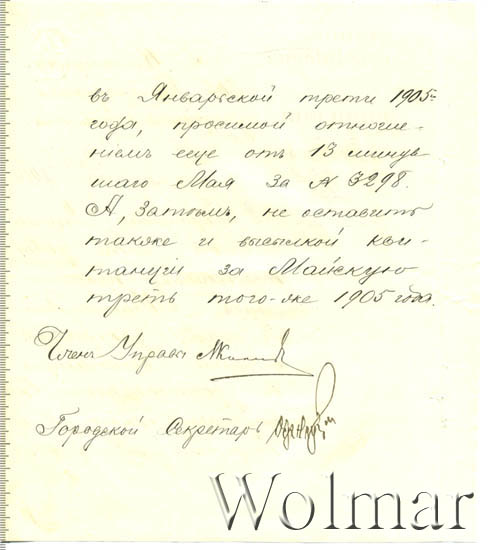 въ Январьской трети 1905-
года, просимой отноше-
ніемъ еще отъ 13 минув-
шаго Мая за № 3298.
А, затѣмъ, не оставить
также и высылкой кви-
танціи за Майскую
треть того-же 1905 года.
Членъ Управы
Городской Секретарь
Wolmar